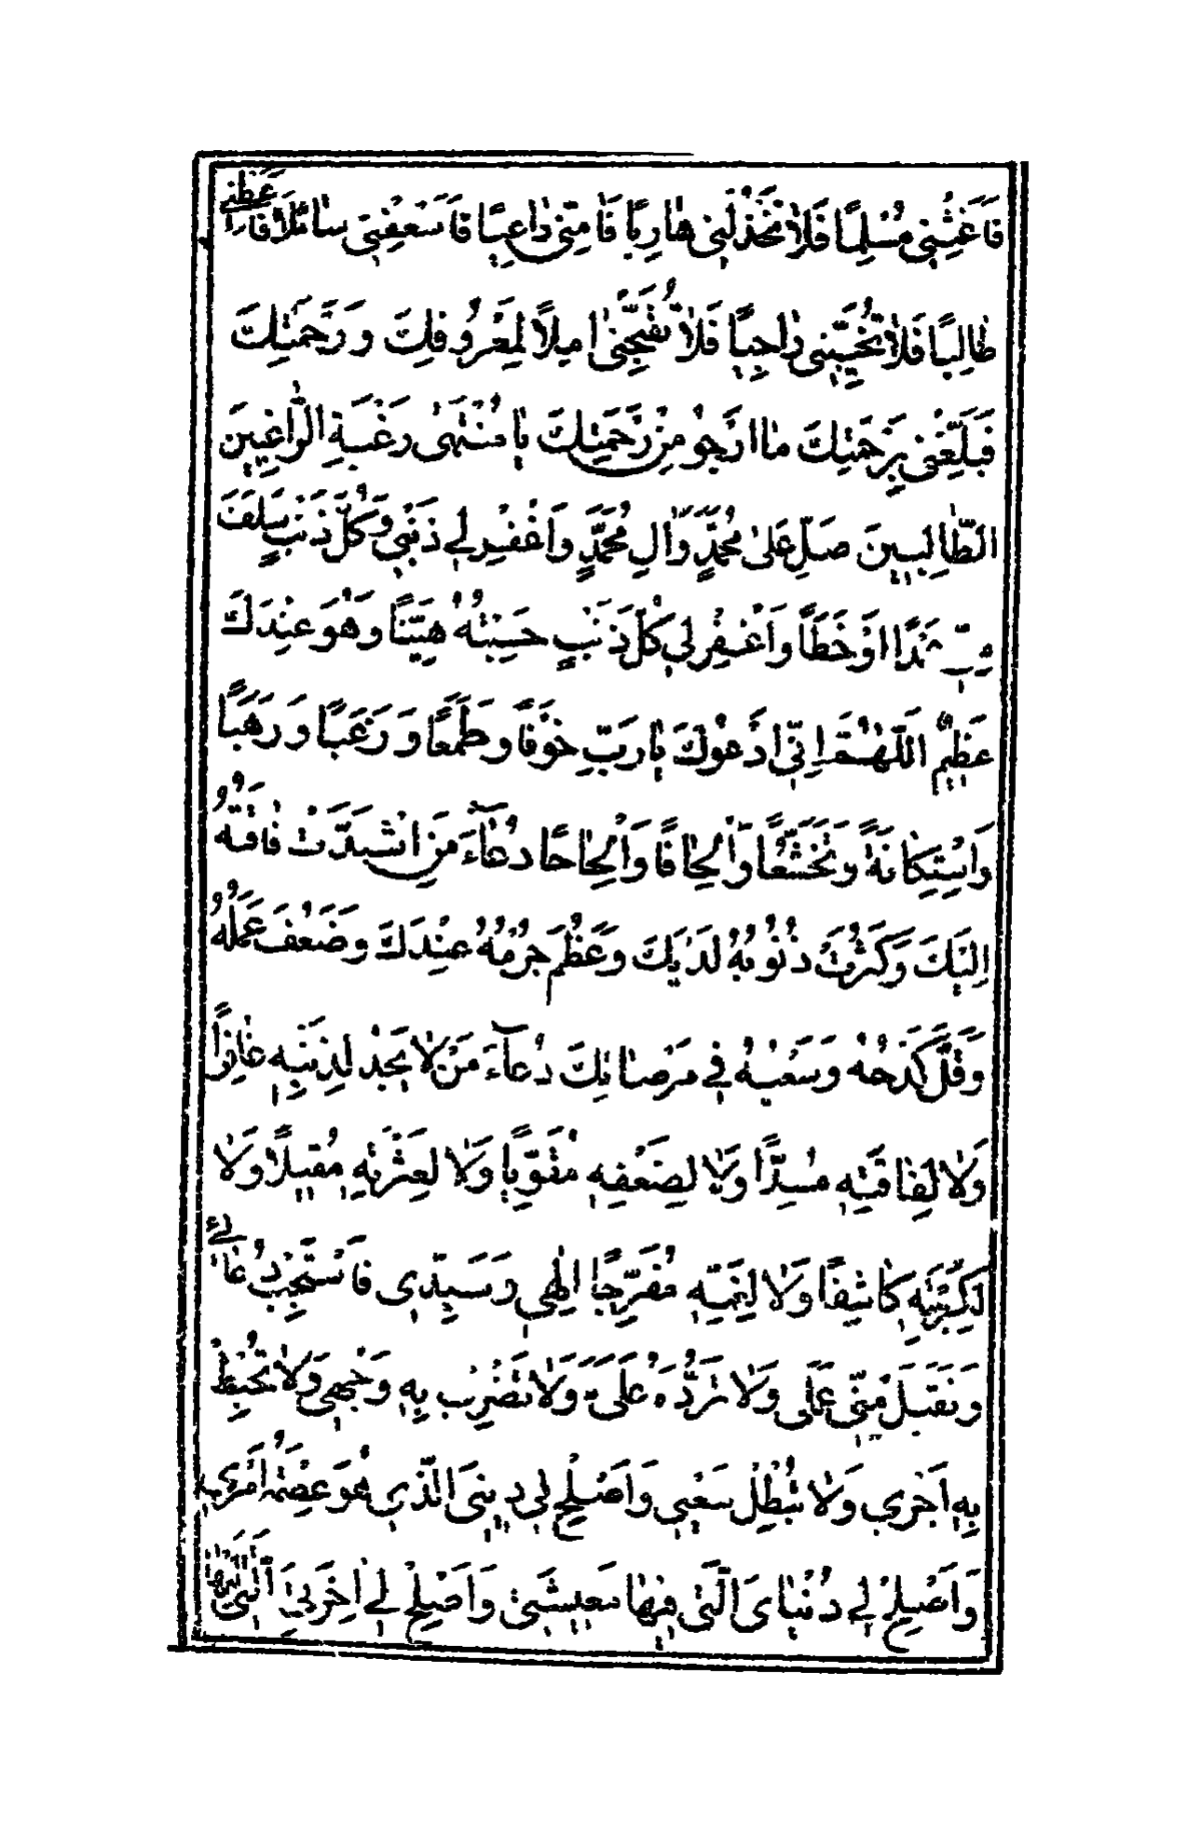 فَاَغِثْنِي مُسْلِمًا فَلاٰ تَخْذُلْنِي هٰارِبًا فَاٰمِنِّي دٰاعِيًا فَاَسْعِفْنِي سٰائِلًا فَاَعْظِنِي
طٰالِبًا فَلاٰ تُخَيِّبْنِي رٰاجِيًا فَلاٰ آمِلًا لِمَعْرُوفِكَ وَ رَحْمَتِكَ
فَبَلِّغْنِي بِرَحْمَتِكَ مٰا اَرْجُو مِنْ رَحْمَتِكَ يٰا مُنْتَهىٰ رَغْبَةِ الرّٰاغِبِينَ
الطّٰالِبِينَ صَلِّ عَلىٰ مُحَمَّدٍ وَاٰلِ مُحَمَّدٍ وَاغْفِرْ لِي ذَنْبِي وَكُلَّ ذَنْبٍ سَلَفَ
مِنِّي عَمْدًا اَوْ خَطَأً وَاغْفِرْ لِي كُلَّ ذَنْبٍ حَسِبْتُهُ هَيِّنًا وَهُوَ عِنْدَكَ
عَظِيمٌ اَللّٰهُمَّ اِنِّي اَدْعُوكَ يٰا رَبِّ خَوْفًا وَطَمَعًا وَ رَغَبًا وَ رَهَبًا
وَاسْتِكٰانَةً وَتَخَشُّعًا وَاِلْحٰافًا وَاِلْحٰاحًا دُعٰآءَ مَنِ اشْتَدَّتْ فٰاقَتُهُ
اِلَيْكَ وَكَثُرَتْ ذُنُوبُهُ لَدَيْكَ وَعَظُمَ جُرْمُهُ عِنْدَكَ وَضَعُفَ عَمَلُهُ
وَقَلَّ كَدْحُهُ وَسَعْيُهُ فِي مَرْضٰاتِكَ دُعٰآءَ مَنْ لاٰ يَجِدُ لِذَنْبِهِ غٰافِرًا
وَلاٰ لِفٰاقَتِهِ مُسِدًّا وَلاٰ لِضَعْفِهِ مُقَوِّيًا وَلاٰ لِعَثْرَتِهِ مُقِيلًا وَلاٰ
لِكُرْبَتِهِ كٰاشِفًا وَلاٰ لِغَمِّهِ مُفَرِّجًا اِلٰهِي وَسَيِّدِي فَاسْتَجِبْ دُعٰائِي
وَتَقَبَّلْ مِنِّي عَمَلِي وَلاٰ تَرُدَّهُ عَلَيَّ وَلاٰ تَضْرِبْ بِهِ وَجْهِي وَلاٰ تُحْبِطْ
بِهِ اَجْرِي وَلاٰ تُبْطِلْ سَعْيِي وَاَصْلِحْ لِي دِينِيَ الَّذِي هُوَ عِصْمَةُ اَمْرِي
وَاَصْلِحْ لِي دُنْيٰايَ الَّتِي فِيهٰا مَعِيشَتِي وَاَصْلِحْ لِي اٰخِرَتِيَ الَّتِي